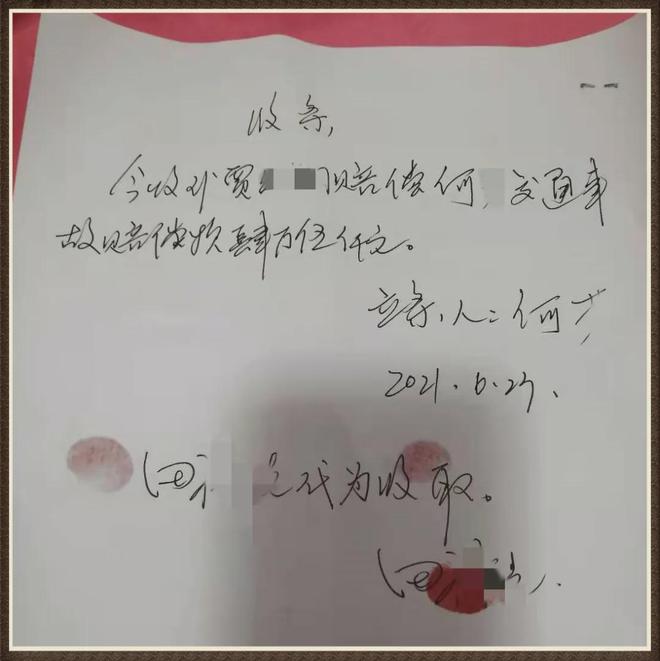 收条,
今收到贾 赔偿何 交通事
故赔偿款肆万伍仟元。
立条人:何
2021.6.27.
田 代为收取。
田